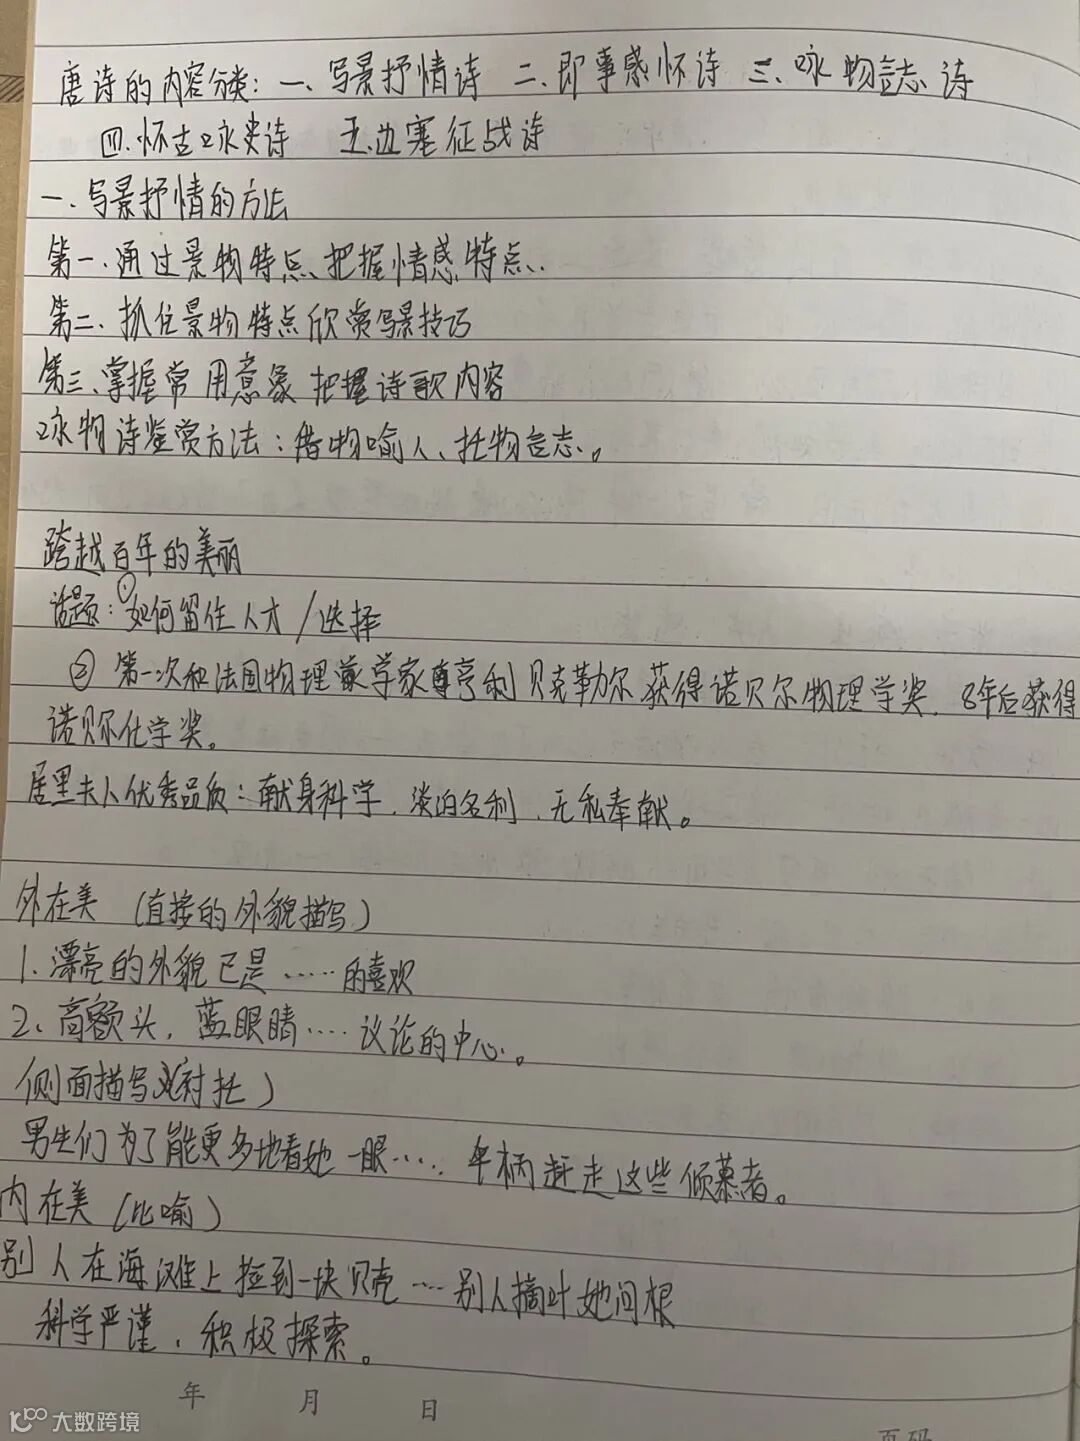 唐诗的内容分类：一、写景抒情诗 二、即事感怀诗 三、咏物言志诗
四、怀古咏史诗 五、边塞征战诗
一、写景抒情的方法
第一、通过景物特点、把握情感特点、
第二、抓住景物特点欣赏写景技巧
第三、掌握常用意象 把握诗歌内容
咏物诗鉴赏方法：借物喻人、托物言志。
跨越百年的美丽
话题：①如何留住人才/选择
② 第一次和法国物理学家亨利贝克勒尔获得诺贝尔物理学奖，8年后获得
诺贝尔化学奖。
居里夫人优秀品质：献身科学、淡泊名利、无私奉献。
外在美 （直接的外貌描写）
1、漂亮的外貌已是……的喜欢
2、高额头，蓝眼睛……议论的中心。
侧面描写（衬托）
男生们为了能更多地看她一眼…… 伞柄赶走这些倾慕者。
内在美（比喻）
别人在海滩上捡到一块贝壳…别人摘叶她问根
科学严谨，积极探索。
年 月 日
页码
大数跨境